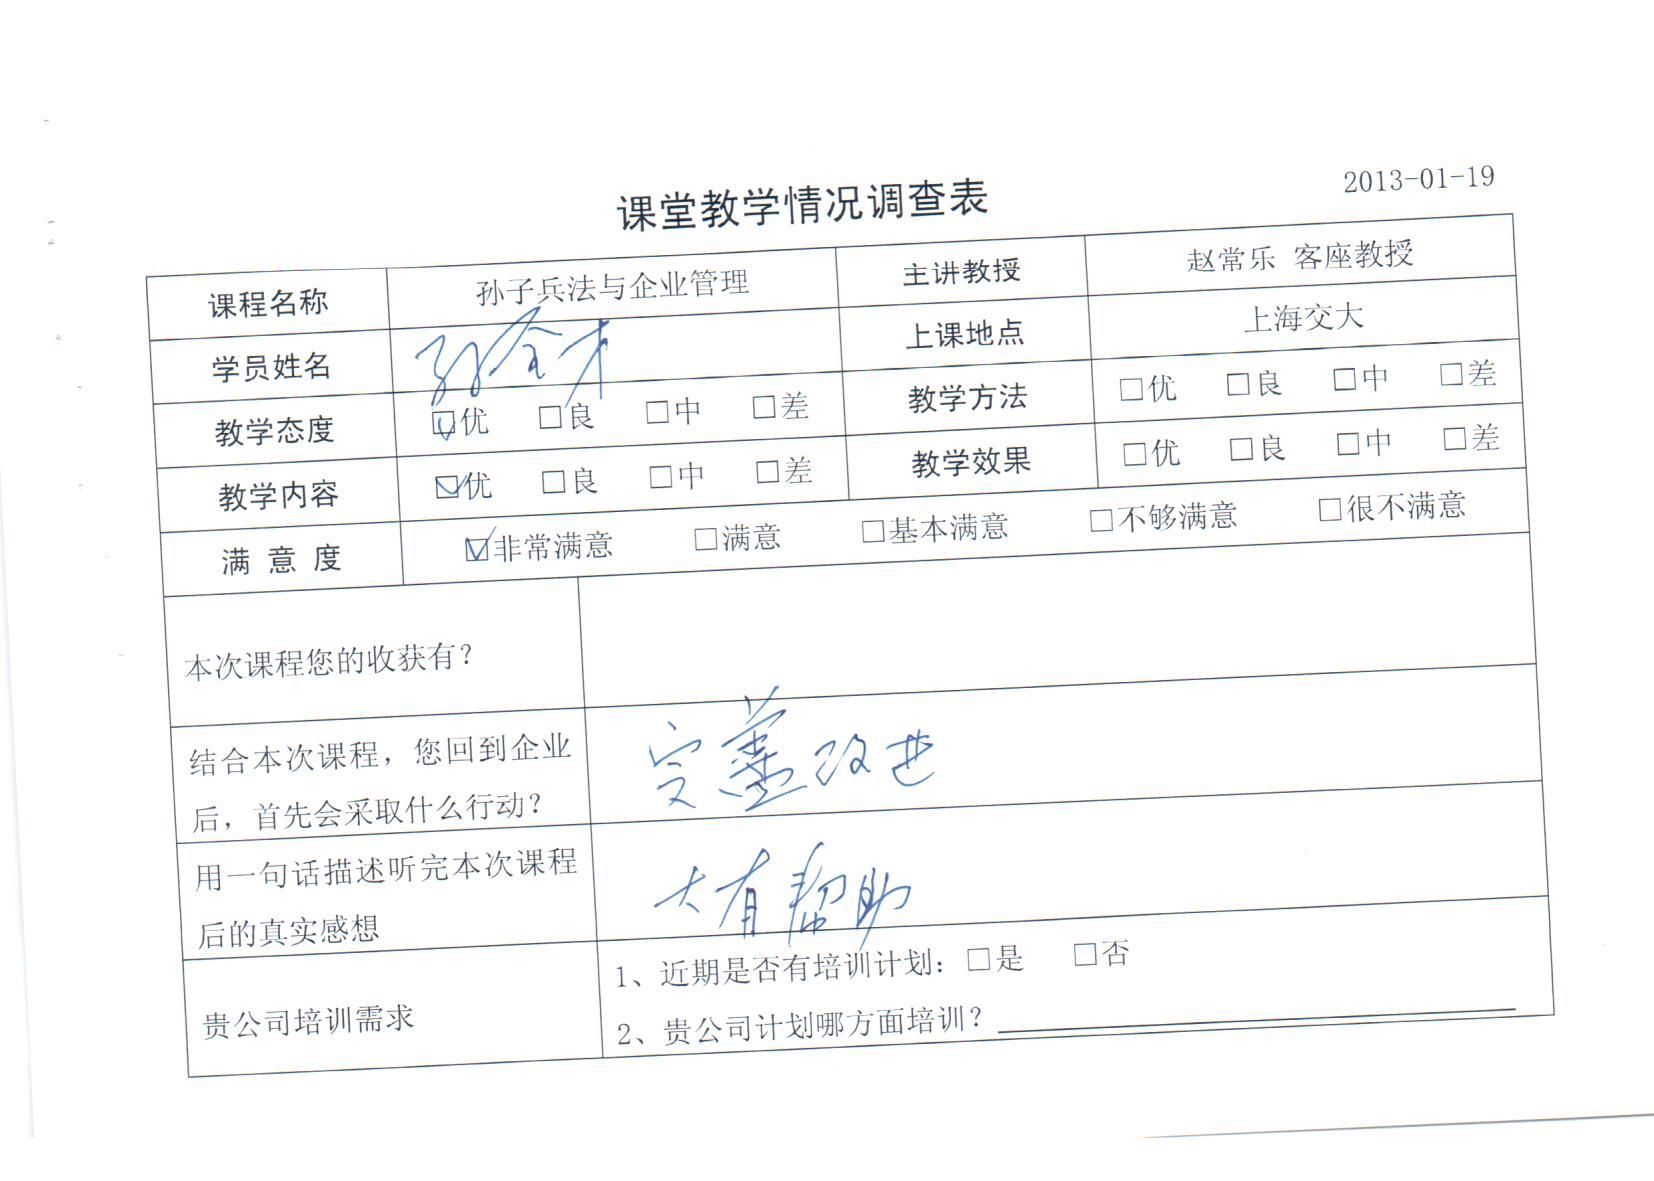 2013-01-19
课堂教学情况调查表
课程名称 孙子兵法与企业管理 主讲教授 赵常乐 客座教授
学员姓名 孙全才 上课地点 上海交大
教学态度 ☑优 □良 □中 □差 教学方法 □优 □良 □中 □差
教学内容 ☑优 □良 □中 □差 教学效果 □优 □良 □中 □差
满意度 ☑非常满意 □满意 □基本满意 □不够满意 □很不满意
本次课程您的收获有？
结合本次课程，您回到企业
后，首先会采取什么行动？
完善改进
用一句话描述听完本次课程
后的真实感想
大有帮助
贵公司培训需求
1、近期是否有培训计划：□是 □否
2、贵公司计划哪方面培训？